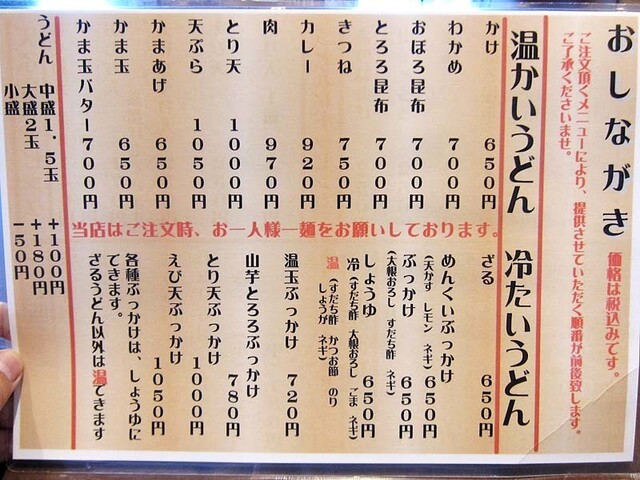 おしながき
価格は税込みです。
ご注文頂くメニューにより、提供させていただく順番が前後致します。
ご了承くださいませ。
温かいうどん
かけ 650円
わかめ 700円
おぼろ昆布 700円
とろろ昆布 700円
きつね 750円
カレー 920円
肉 970円
とり天 1000円
天ぷら 1050円
かまあげ 650円
かま玉 650円
かま玉バター 700円
うどん 中盛1.5玉 +100円
大盛2玉 +180円
小盛 -50円
当店はご注文時、お一人様一麺をお願いしております。
冷たいうどん
ざる 650円
めんくいぶっかけ 650円
(天かす レモン ネギ)
ぶっかけ 650円
(大根おろし すだち酢 ネギ)
しょうゆ 650円
冷(すだち酢 大根おろし ごま ネギ)
温(すだち酢 かつお節 のり
しょうが ネギ)
温玉ぶっかけ 720円
山芋とろろぶっかけ
780円
とり天ぶっかけ 1000円
えび天ぶっかけ 1050円
各種ぶっかけは、しょうゆに
できます。
ざるうどん以外は温できます